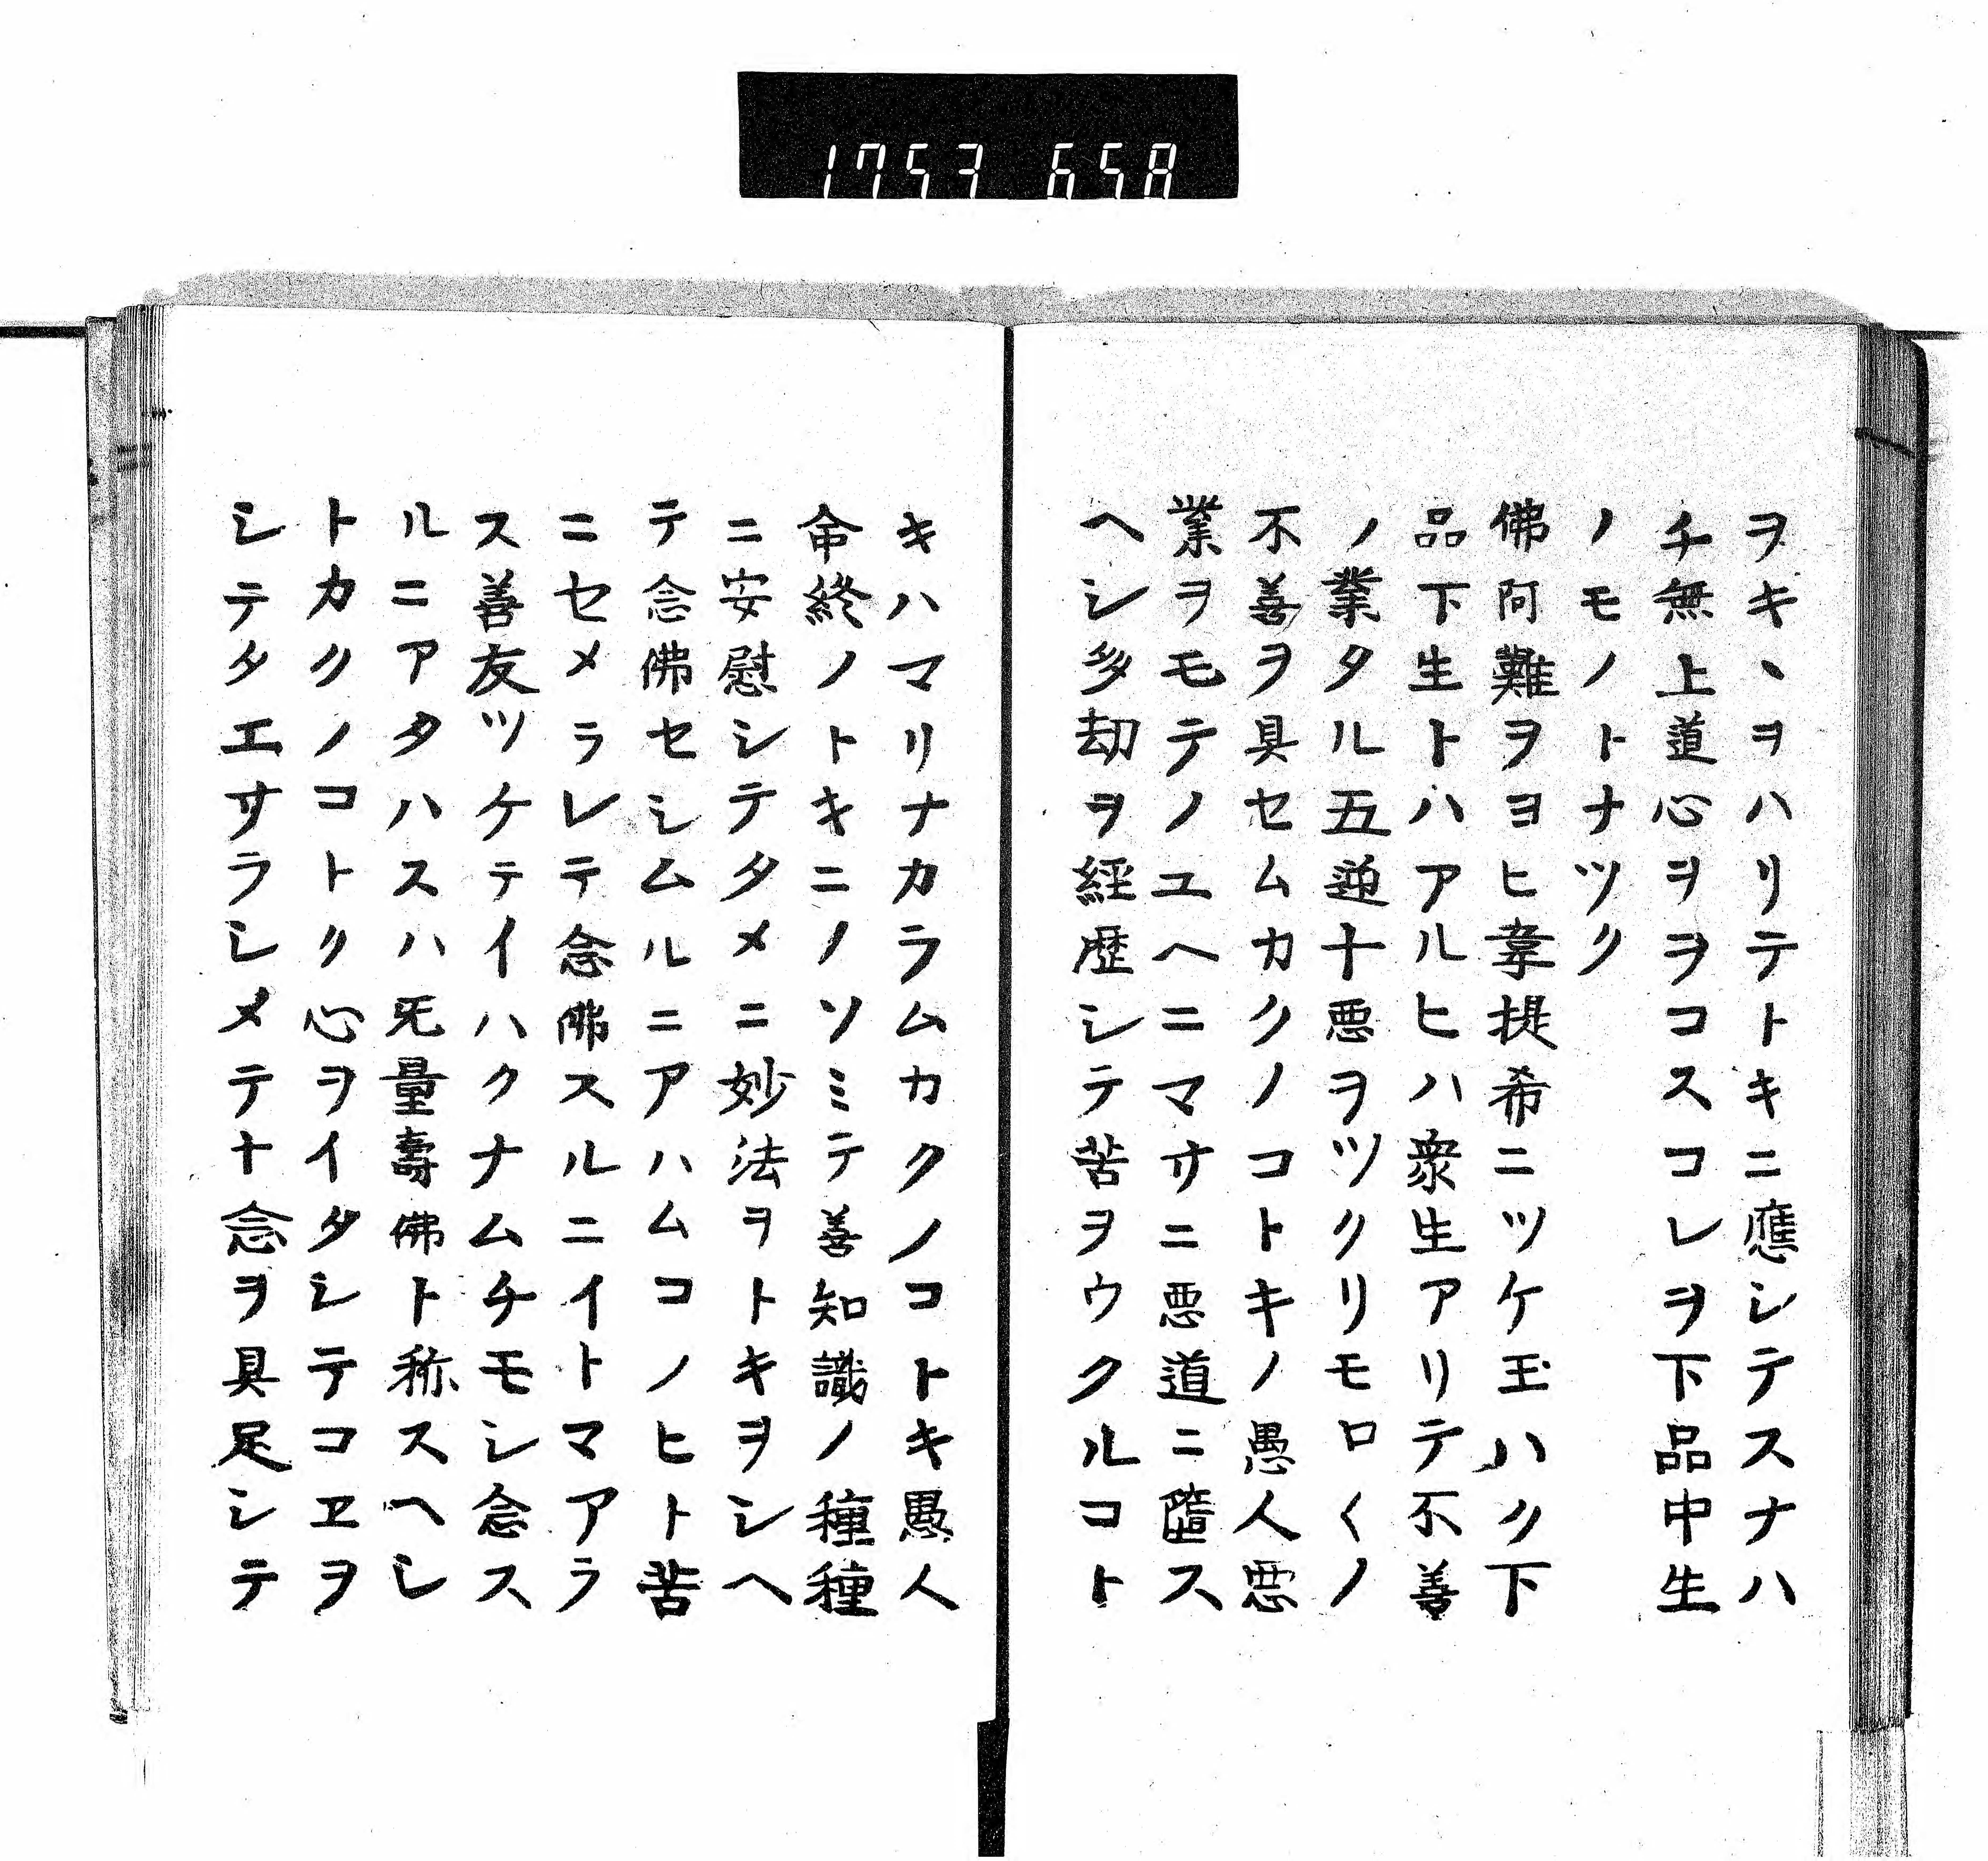 1753 658
ヲキヽヲハリテトキニ應シテスナハ
チ無上道心ヲヲコスコレヲ下品中生
ノモノトナツク
佛阿難ヲヨヒ韋提希ニツケ玉ハク下
品下生トハアルヒハ衆生アリテ不善
ノ業タル五逆十悪ヲツクリモロ〱ノ
不善ヲ具セムカクノコトキノ愚人悪
業ヲモテノユヘニマサニ悪道ニ墮ス
ヘシ多劫ヲ経歴シテ苦ヲウクルコト
キハマリナカラムカクノコトキ愚人
命終ノトキニノソミテ善知識ノ種種
ニ安慰シテタメニ妙法ヲトキヲシヘ
テ念佛セシムルニアハムコノヒト苦
ニセメラレテ念佛スルニイトマアラ
ス善友ツケテイハクナムチモシ念ス
ルニアタハスハ旡量壽佛ト称スヘシ
トカクノコトク心ヲイタシテコヱヲ
シテタエサラシメテ十念ヲ具足シテ